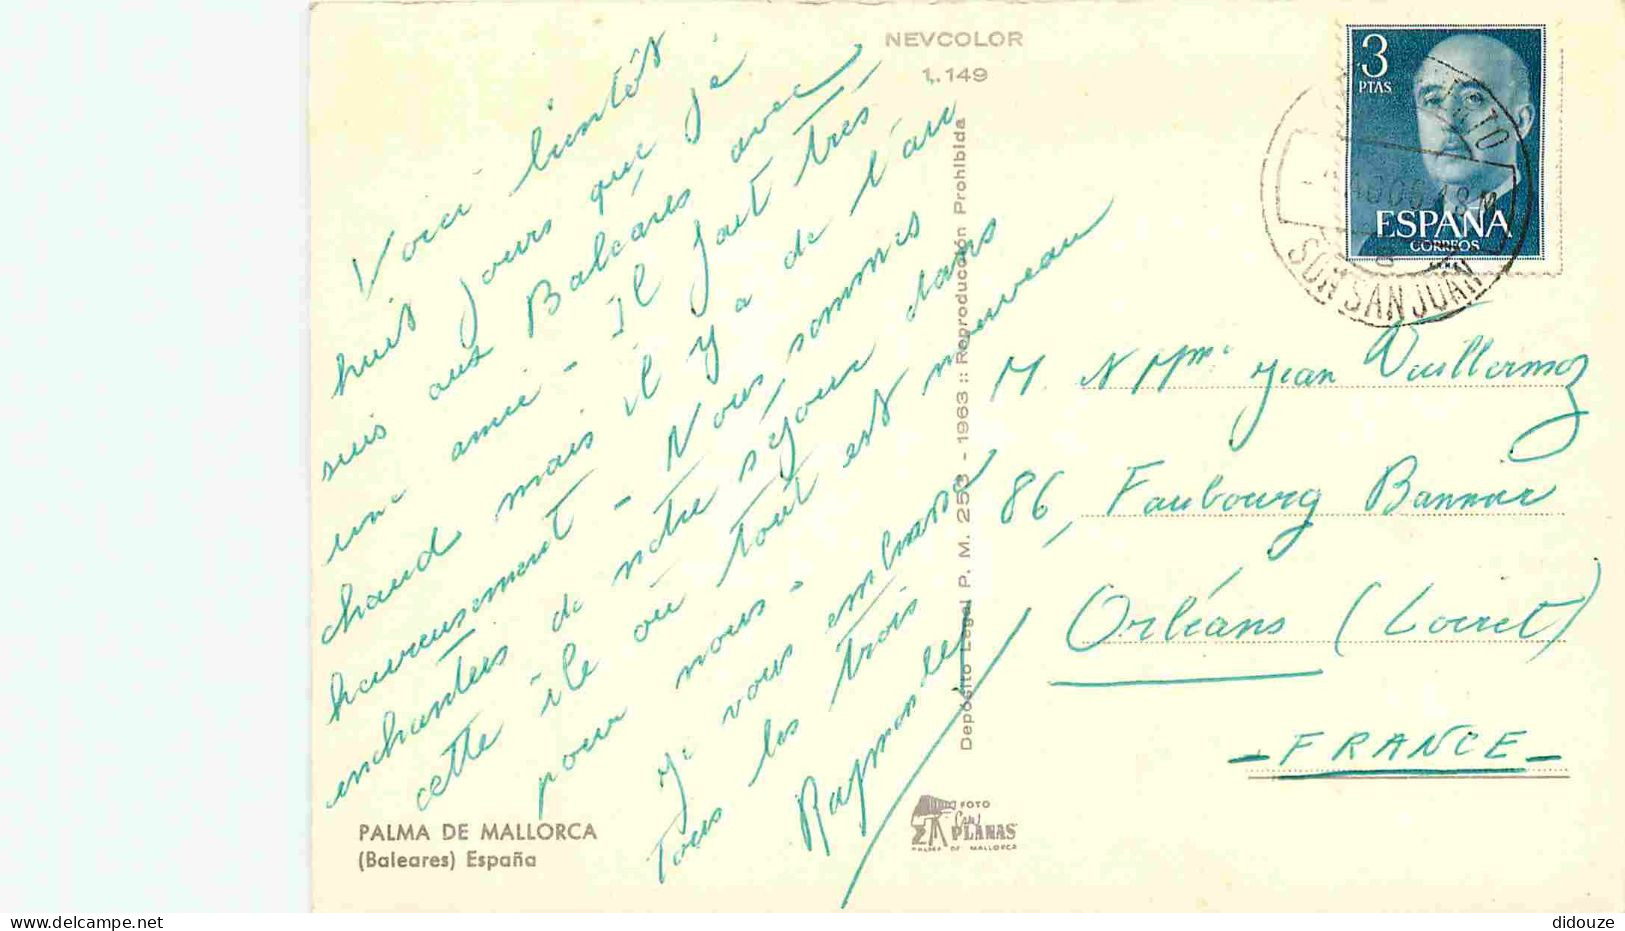 NEVCOLOR
1.149
3
PTAS
ESPAÑA
CORREOS
SON SAN JUAN
Voici bientôt
huit jours que je
suis aux Baléares avec
une amie - Il fait très
chaud mais il y a de l'air
heureusement - Nous sommes
enchantées de notre séjour dans
cette île où tout est nouveau
pour nous -
Je vous embrasse
tous les trois
Raymonde
M. & Mme Jean Vuillermoz
86, Faubourg Bannier
Orléans (Loiret)
- FRANCE -
Depósito Legal P. M. 253 - 1963 :: Reproducción Prohibida
PALMA DE MALLORCA
(Baleares) España
FOTO
Casa
PLANAS
PALMA DE MALLORCA
www.delcampe.net
didouze